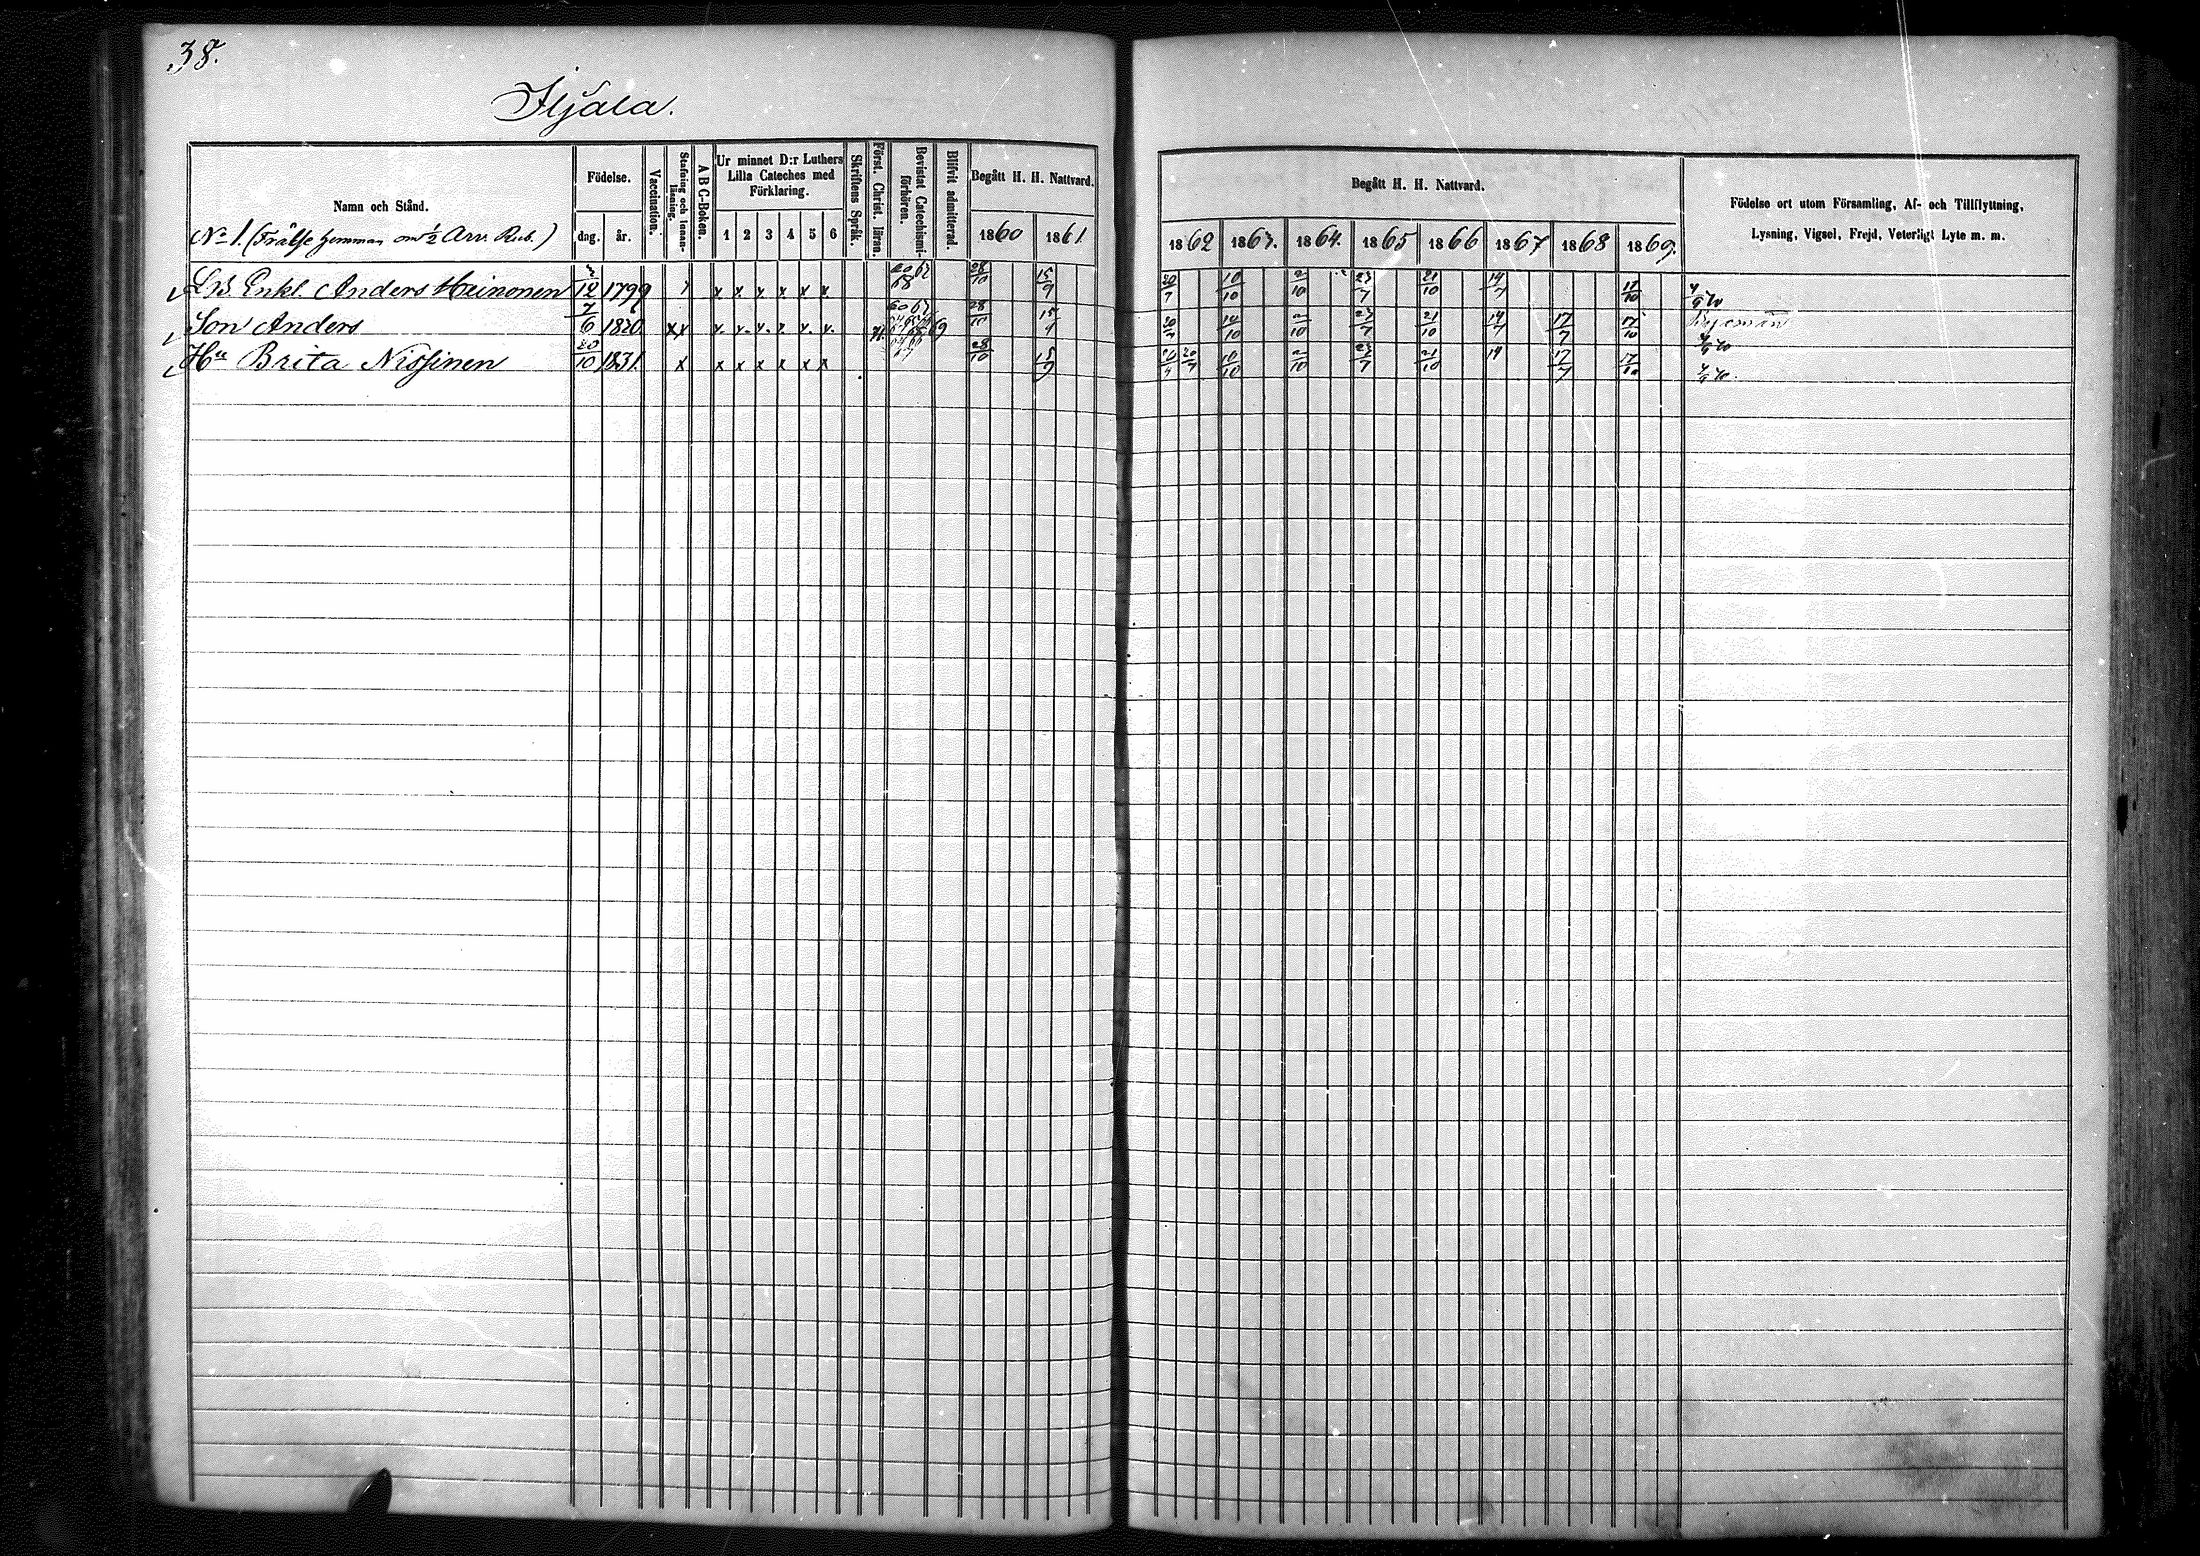 38.
Iljala.
Namn och Stånd.
Födelse.
dag. år.
Vaccination.
Stafning och Innan-läsning.
A B C-Boken.
Ur minnet D:r Luthers
Lilla Cateches med
Förklaring.
1 2 3 4 5 6
Skriftens Språk.
Först. Christ. läran.
Bevistat Catechismi-förhören.
Blifvit admitterad.
Begått H. H. Nattvard.
1860 1861
Begått H. H. Nattvard.
1862 1863. 1864. 1865 1866 1867 1868 1869.
Födelse ort utom Församling, Af- och Tillflyttning,
Lysning, Vigsel, Frejd, Veterligt Lyte m. m.
No 1. (Frälse hemman om 1/2 Arv. Rub.)
Enkl. Anders Heinonen /12 1799 x x x x x x 68 28/10 15/9 20/7 10/10 2/10 23/7 21/10 14/7 17/10
Son Anders 7/6 1820 xx x x x x x x 69 28/10 14/10 2/10 23/7 21/10 14/7 17/7 17/10
Hu Brita Nissinen 20/10 1831. x x x x x x x 28/10 20/7 10/10 2/10 23/7 21/10 14 17/7 17/10